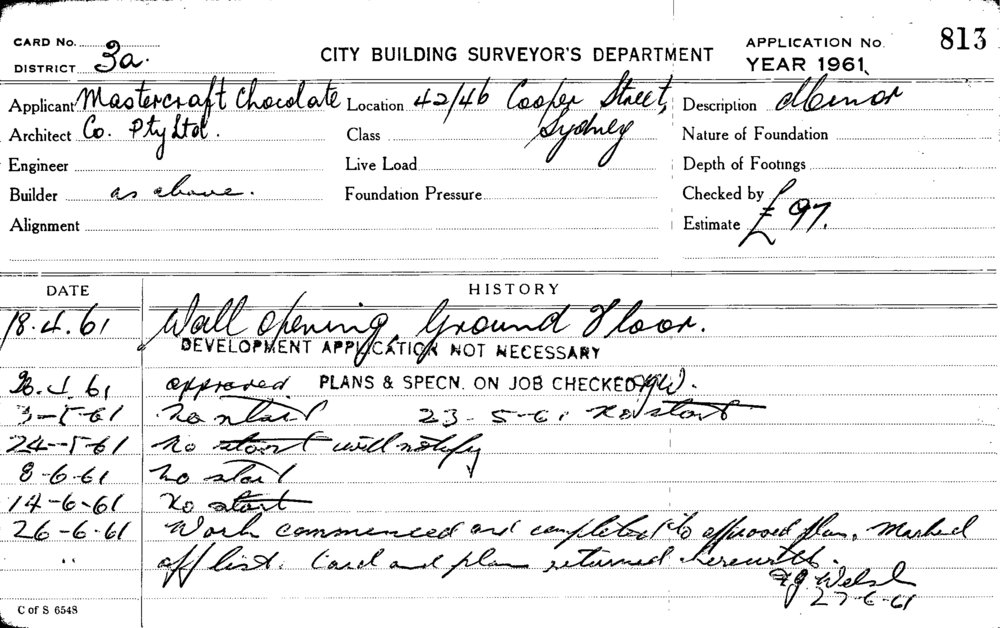 CARD No. 3a.
DISTRICT
CITY BUILDING SURVEYOR'S DEPARTMENT
APPLICATION No. 813
YEAR 1961.
Applicant Mastercraft Chocolate Location 42/46 Cooper Street, Description Minor
Architect Co. Pty Ltd. Class Sydney Nature of Foundation
Engineer Live Load Depth of Footings
Builder as above. Foundation Pressure Checked by
Alignment Estimate £97.
DATE HISTORY
18.4.61 Wall opening, Ground Floor.
DEVELOPMENT APPLICATION NOT NECESSARY
61 approved PLANS & SPECN. ON JOB CHECKED
3-5-61 No start 23-5-61 No start
24-5-61 No start will notify
8-6-61 No start
14-6-61 No start
26-6-61 Work commenced and completed to approved plan. Marked
" off list. Card and plan returned herewith.
Welsh
27-6-61
C of S 6548